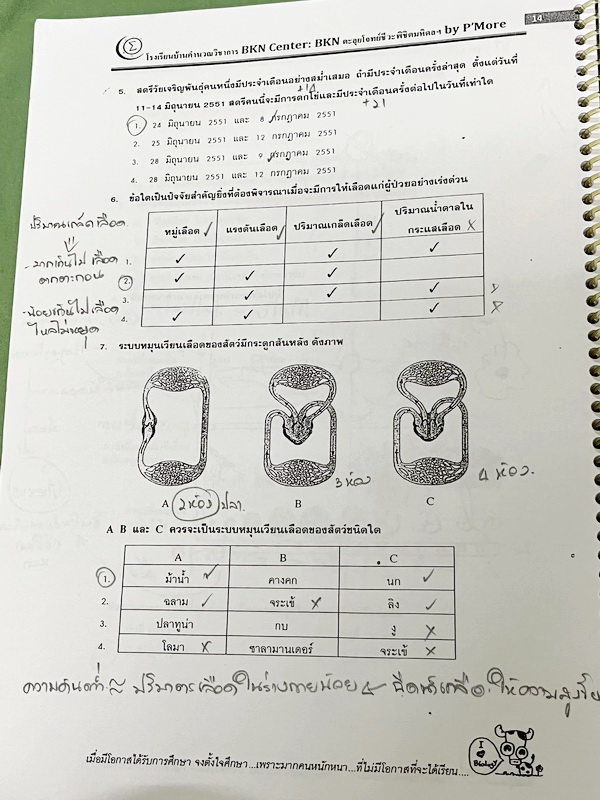 โรงเรียนบ้านคำนวณวิชาการ BKN Center: BKN ตะลุยโจทย์ชีวะพิชิตมหิดลฯ by P'More
14
5. สตรีวัยเจริญพันธุ์คนหนึ่งมีประจำเดือนอย่างสม่ำเสมอ ถ้ามีประจำเดือนครั้งล่าสุด ตั้งแต่วันที่
11-14 มิถุนายน 2551 สตรีคนนี้จะมีการตกไข่และมีประจำเดือนครั้งต่อไปในวันที่เท่าใด
+14
+21
1. 24 มิถุนายน 2551 และ 8 กรกฎาคม 2551
2. 25 มิถุนายน 2551 และ 12 กรกฎาคม 2551
3. 28 มิถุนายน 2551 และ 9 กรกฎาคม 2551
4. 28 มิถุนายน 2551 และ 12 กรกฎาคม 2551
6. ข้อใดเป็นปัจจัยสำคัญยิ่งที่ต้องพิจารณาเมื่อจะมีการให้เลือดแก่ผู้ป่วยอย่างเร่งด่วน
หมู่เลือด ✓ แรงดันเลือด ✓ ปริมาณเกล็ดเลือด ✓ ปริมาณน้ำตาลในกระแสเลือด X
1. ✓ ✓ ✓
2. ✓ ✓ ✓
3. ✓ ✓ ✓ X
4. ✓ ✓ ✓ X
ปริมาณเกล็ดเลือด
- มากเกินไป เลือด
ตกตะกอน
- น้อยเกินไป เลือด
ไหลไม่หยุด
7. ระบบหมุนเวียนเลือดของสัตว์มีกระดูกสันหลัง ดังภาพ
A 2 ห้อง ปลา
B 3 ห้อง
C 4 ห้อง.
A B และ C ควรจะเป็นระบบหมุนเวียนเลือดของสัตว์ชนิดใด
A B C
1. ม้าน้ำ ✓ คางคก นก ✓
2. ฉลาม ✓ จระเข้ X ลิง ✓
3. ปลาทูน่า กบ งู X
4. โลมา X ซาลามานเดอร์ จระเข้ X
ความดันต่ำ ปริมาตรเลือดในร่างกายน้อย ฉีดน้ำเกลือ ให้ความสูง
I ♥ Biology
เมื่อมีโอกาสได้รับการศึกษา จงตั้งใจศึกษา...เพราะมากคนหนักหนา...ที่ไม่มีโอกาสที่จะได้เรียน....